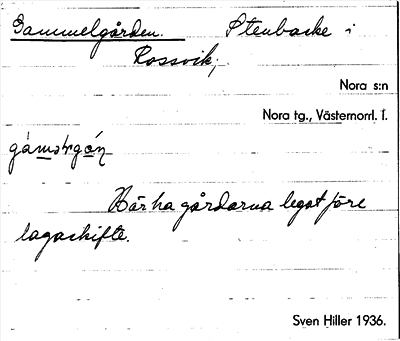 Gammelgården. Stenbacke i
Rossvik,
Nora s:n
Nora tg., Västernorrl. l.
Här ha gårdarna legat före
lagaskifte.
Sven Hiller 1936.